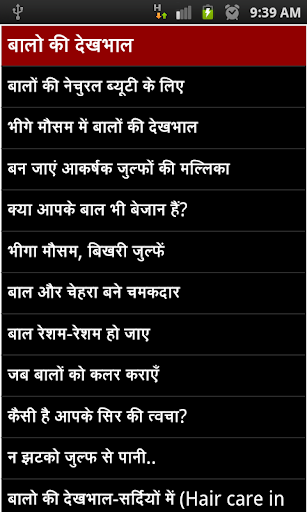 H
9:39 AM
बालो की देखभाल
बालों की नेचुरल ब्यूटी के लिए
भीगे मौसम में बालों की देखभाल
बन जाएं आकर्षक जुल्फों की मल्लिका
क्या आपके बाल भी बेजान हैं?
भीगा मौसम, बिखरी जुल्फें
बाल और चेहरा बने चमकदार
बाल रेशम-रेशम हो जाए
जब बालों को कलर कराएँ
कैसी है आपके सिर की त्वचा?
न झटको जुल्फ से पानी..
बालो की देखभाल-सर्दियों में (Hair care in